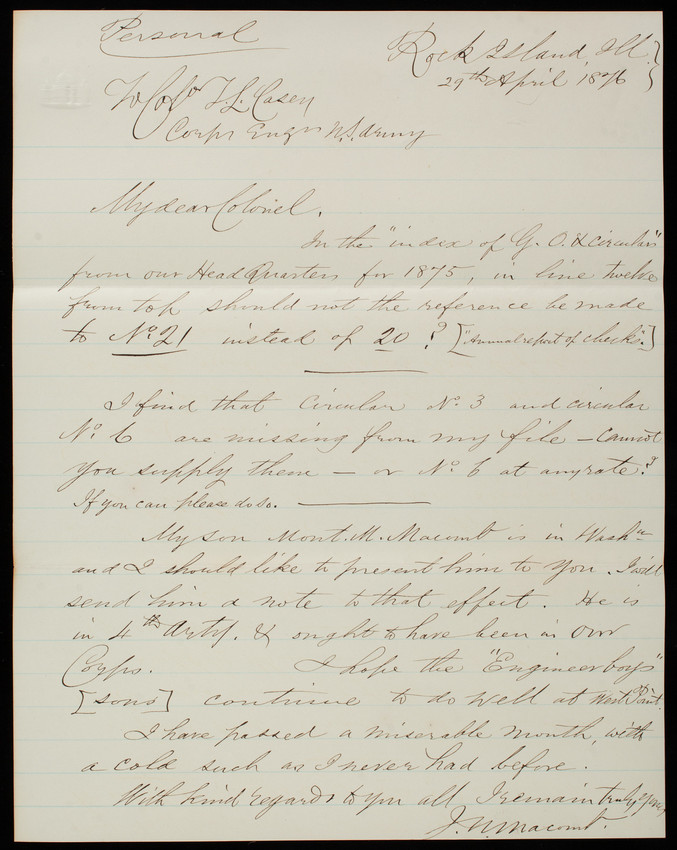 Personal
Rock Island, Ill.
29th April 1876
To Col. T. L. Casey
Corps Engrs U.S. Army
My dear Colonel,
In the "index of G. O. & circulars"
from our Head Quarters for 1875, in line twelve
from top should not the reference be made
to No. 21 instead of 20? ["Annual report of checks".]
I find that Circular No. 3 and circular
No. 6 are missing from my file – cannot
you supply them – or No. 6 at any rate?
If you can please do so.
My son Mont. M. Macomb is in Washn
and I should like to present him to you. I will
send him a note to that effect. He is
in 4th Arty. & ought to have been in our
Corps. I hope the "Engineer boys"
[sons] continue to do well at West Point.
I have passed a miserable month, with
a cold such as I never had before.
With kind regards to you all I remain truly yours
J. N. Macomb.